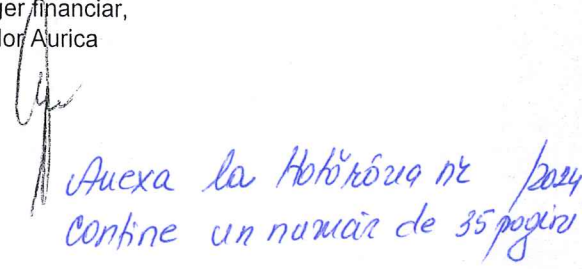 ger financiar,
lor Aurica
Anexa la Hotărârea nr /2024
conține un număr de 35 pagini